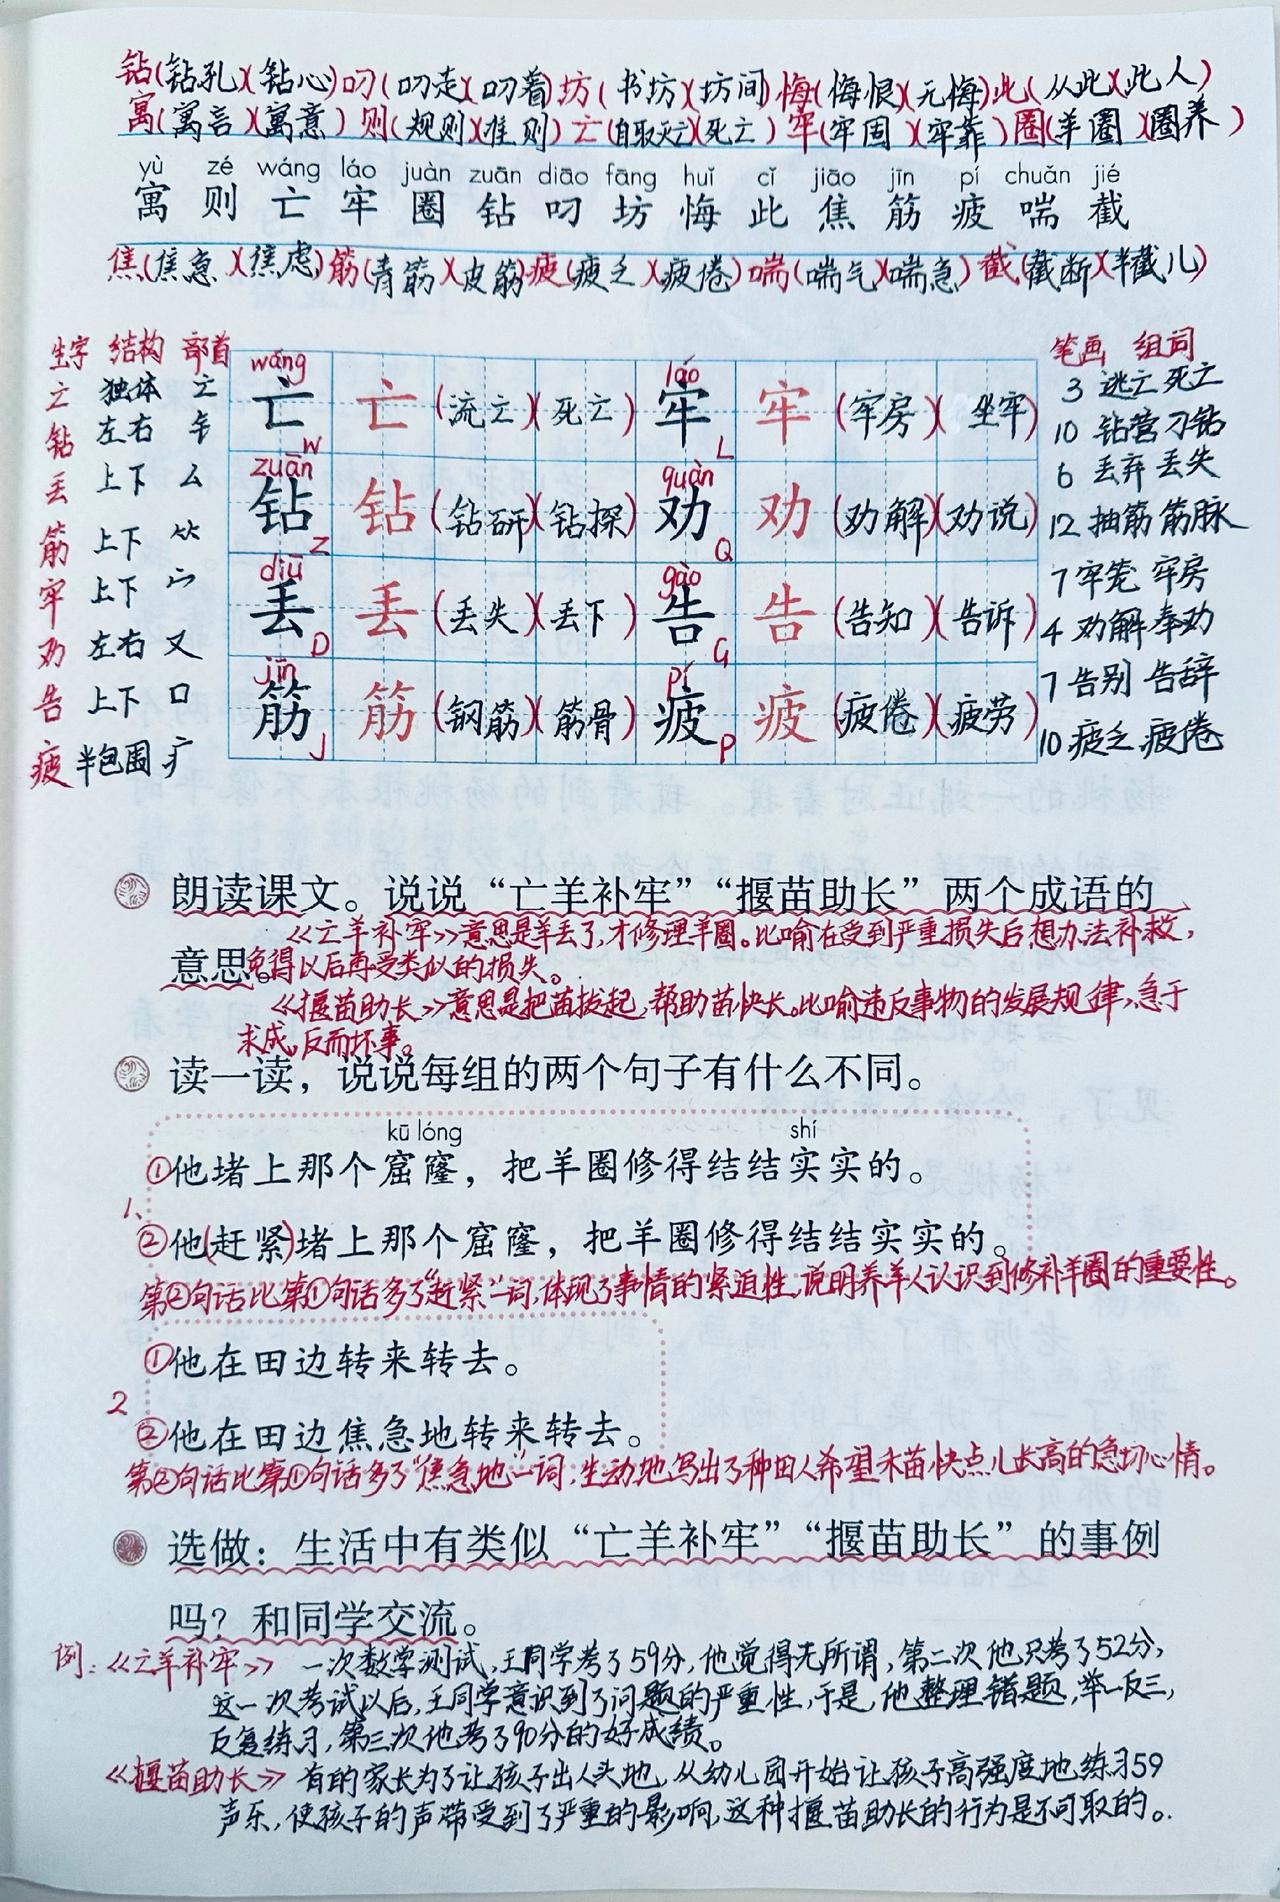 钻(钻孔)(钻心)叨(叨走)(叨着)坊(书坊)(坊间)悔(悔恨)(无悔)此(从此)(此人)
寓(寓言)(寓意)则(规则)(准则)亡(自取灭亡)(死亡)牢(牢固)(牢靠)圈(羊圈)(圈养)
yù zé wáng láo juàn zuān diāo fāng huǐ cǐ jiāo jīn pí chuǎn jié
寓 则 亡 牢 圈 钻 叼 坊 悔 此 焦 筋 疲 喘 截
焦(焦急)(焦虑)筋(青筋)(皮筋)疲(疲乏)(疲倦)喘(喘气)(喘急)截(截断)(半截儿)
生字 结构 部首
亡 独体 亠
钻 左右 钅
丢 上下 厶
筋 上下 𥫗
牢 上下 宀
劝 左右 又
告 上下 口
疲 半包围 疒
wáng láo
亡 亡 (流亡)(死亡) 牢 牢 (牢房)(坐牢)
W L
zuān quàn
钻 钻 (钻研)(钻探) 劝 劝 (劝解)(劝说)
Z Q
diū gào
丢 丢 (丢失)(丢下) 告 告 (告知)(告诉)
D G
jīn pí
筋 筋 (钢筋)(筋骨) 疲 疲 (疲倦)(疲劳)
J P
笔画 组词
3 逃亡 死亡
10 钻营 刁钻
6 丢弃 丢失
12 抽筋 筋脉
7 牢笼 牢房
4 劝解 奉劝
7 告别 告辞
10 疲乏 疲倦
朗读课文。说说“亡羊补牢”“揠苗助长”两个成语的
《亡羊补牢》意思是羊丢了,才修理羊圈。比喻在受到严重损失后想办法补救,
意思。
免得以后再受类似的损失。
《揠苗助长》意思是把苗拔起,帮助苗快长。比喻违反事物的发展规律,急于
求成,反而坏事。
读一读，说说每组的两个句子有什么不同。
kū lóng shí
①他堵上那个窟窿，把羊圈修得结结实实的。
1、
②他(赶紧)堵上那个窟窿，把羊圈修得结结实实的。
第②句话比第①句话多了“赶紧”一词,体现了事情的紧迫性,说明养羊人认识到修补羊圈的重要性。
①他在田边转来转去。
2
②他在田边焦急地转来转去。
第②句话比第①句话多了“焦急地”一词,生动地写出了种田人希望禾苗快点儿长高的急切心情。
选做：生活中有类似“亡羊补牢”“揠苗助长”的事例
吗？和同学交流。
例:《亡羊补牢》 一次数学测试,王同学考了59分,他觉得无所谓,第二次他只考了52分,
这一次考试以后,王同学意识到了问题的严重性,于是,他整理错题,举一反三,
反复练习,第三次他考了90分的好成绩。
《揠苗助长》有的家长为了让孩子出人头地,从幼儿园开始让孩子高强度地练习
59
声乐,使孩子的声带受到了严重的影响,这种揠苗助长的行为是不可取的。